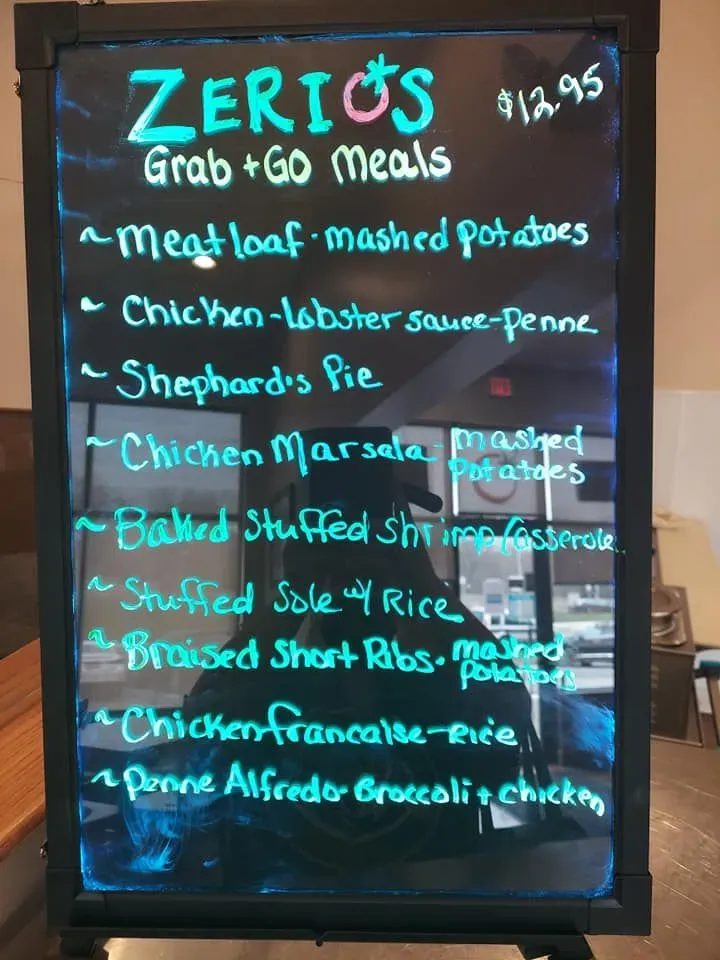 ZERIO'S
$12.95
Grab + GO Meals
~ Meatloaf - mashed potatoes
~ Chicken - Lobster sauce - penne
~ Shephard's Pie
~ Chicken Marsala - mashed
potatoes
~ Baked Stuffed Shrimp Casserole
~ Stuffed Sole w/ Rice
~ Braised Short Ribs - mashed
potatoes
~ Chicken francaise - Rice
~ Penne Alfredo - Broccoli + chicken